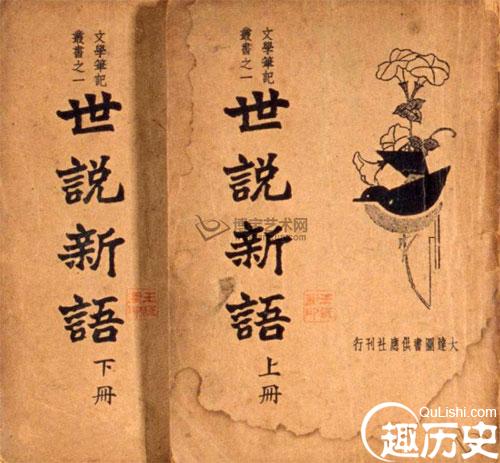 文學筆記
叢書之一
世説新語
上冊
大達圖書供應社刊行
文學筆記
叢書之一
世説新語
下冊
博宝艺术网
QuLishi.com
趣历史